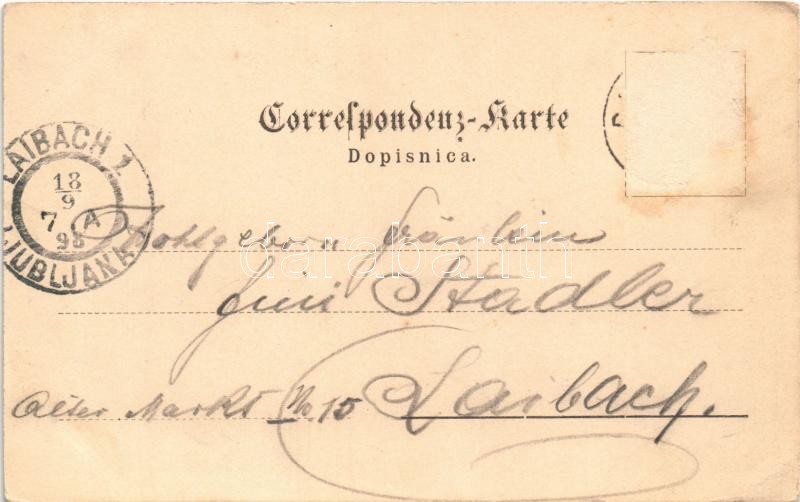 Correspondenz-Karte
Dopisnica.
LAIBACH 1
18
9
7 A
98
LJUBLJANA
Wohlgeborn Fräulein
Stadler
Alter Markt No 15 Laibach.
darabanth